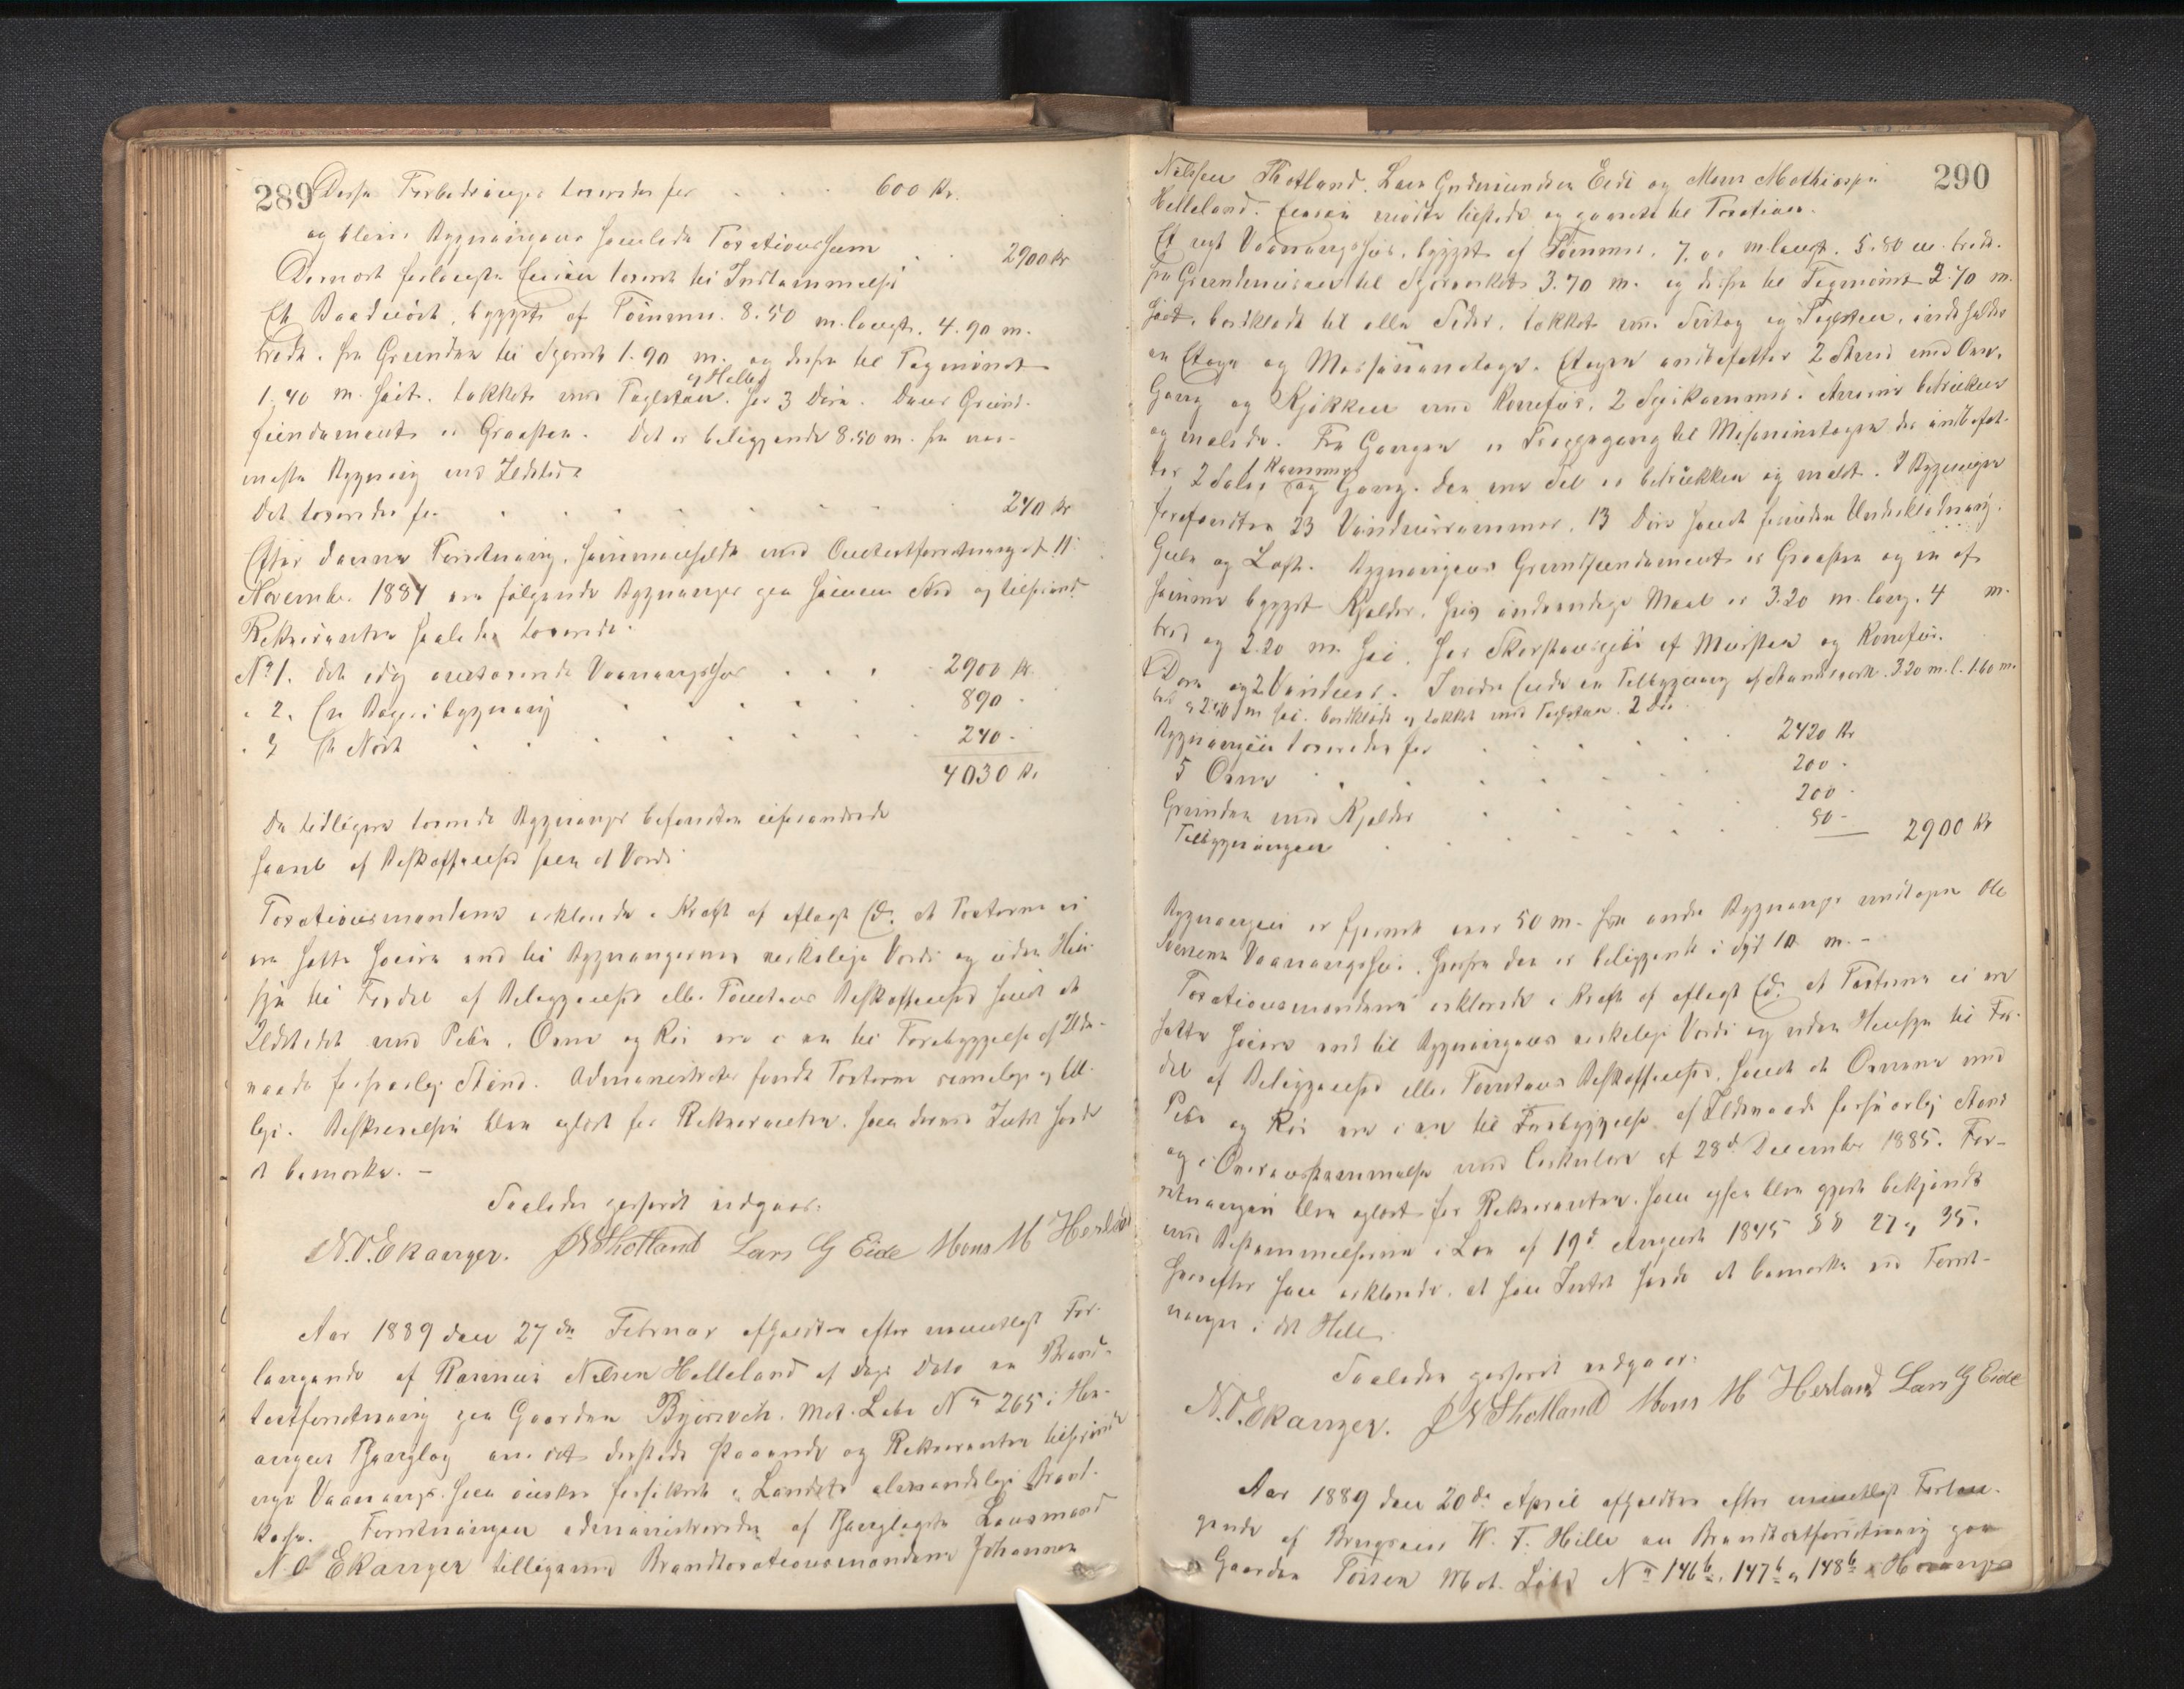 289
Disse Forbedringer taxeredes for . . . 600 Kr.
og bliver Bygningens samlede Taxationssum . . 2900 Kr
Dernæst forlangte Eieren taxeret til Indlemmelse
Et Baadnöst, bygget af Tömmer. 8.50 m. langt, 4.90 m.
bredt. fra Grunden til Sperret 1.90 m. og derfra til Tagmönet
1.40 m. höit. takket med Taglsten og Heller har 3 Döre. Dens Grund-
fundament er Graasten. Det er beliggende 8.50 m. fra nær-
meste Bygning med Ildsted
Det taxeredes for . . . . . . . 240 Kr
Efter denne Forretning, sammenholdt med Omtaxtforretning af 11
November 1884 ere fölgende Bygninger paa samme Sted og tilhörende
Rekvirenten saaledes taxerede:
No 1. Det idag omtaxerede Vaaningshus . . . 2900 Kr.
" 2. En Bageribygning . . . . . 890 -
" 3 Et Nöst . . . . . . . 240 -
4030 Kr
De tidligere taxerede Bygninger befandtes uforandrede
saavel af Beskaffenhed som af Værdi
Taxationsmændene erklærede i Kraft af aflagt Ed, at Taxterne ei
ere satte höiere end til Bygningernes virkelige Værdi og uden Hen-
syn til Fordel af Beliggenhed eller Tomtens Beskaffenhed samt at
Ildstedet med Pibe, Ovne og Rör ere i en til Forebyggelse af Ilds-
vaade forsvarlig Stand. Administrator fandt Taxterne rimelige og bil-
lige. Beskrivelsen blev oplæst for Rekvirenten, som dermed Intet havde
at bemærke. -
Saaledes passeret udgaar:
N.O. Ekanger. J N Thotland Lars G Eide Mons M Herland
Aar 1889 den 27de Februar afholdtes efter mundtlig For-
langende af Rasmus Nilsen Helleland af Dags Dato en Brand-
taxtforretning paa Gaarden Björsvik. Mat. Löbe No 265 i Ho-
sanger Thinglag over et dersteds staaende og Rekvirenten tilhörende
nye Vaaningshus som önskes forsikret i Landets almindelige Brand-
kasse. Forretningen administreredes af Thinglagets Lensmand
N. O Ekanger tilligemed Brandtaxationsmændene Johannes
290
Nilssen Thotland. Lars Gudmundsen Eide og Mons Mathiassen
Helleland. Eieren mödte tilstede og paaviste til Taxation.
Et nyt Vaaningshus, bygget af Tömmer. 7.00 m. langt. 5.80 m. bredt.
fra Grundmuren til Sperreraftet 3.70 m. og derfra til Tagmönet 2.70 m.
höit, bordklædt til alle Sider, takket med Sutag og Taglsten, indeholder
en Etage og Messaninetage. Etagen indbefatter 2 Stuer med Ovn,
Gang og Kjökken med Komfur, 2 Spiskammer. Stuerne betrukne
og malede. Fra Gangen er Trappegang til Mesaninetagen der indbefat-
ter 2 Sale, 1 Kammer og Gang. Den ene Sal er betrukken og malt. I Bygningen
forefandtes 23 Vinduesrammer, 13 Döre samt fornöden Underklædning,
Gulv og Loft. Bygningens Grundfundament er Graasten og en af
samme bygget Kjelder, hvis indvendige Maal er 3.20 m. lang, 4 m.
bred og 2.20 m. höi. har Skorstenspibe af Mursten og Komfur.
1 Dör og 2 Vinduer. I vestre Ende en Tilbygning af Standerværk. 3.20 m. l. 1.60 m.
br. og 2.50 m höi. bordklædt og takket med Taglsten. 2 Dör
Bygningen taxeredes for . . . . . 2420 Kr
5 Ovne . . . . . . 200 -
Grunden med Kjelder . . . . 200 -
Tilbygningen . . . . . 80 - 2900 Kr
Bygningen er fjernet over 50 m. fra andre Bygninger undtagen Ole
Iversens Vaaningshus, hvorfra den er beliggende i Syd 10 m. -
Taxationsmændene erklærede i Kraft af aflagt Ed, at Taxterne ei ere
satte höiere end til Bygningens virkelige Værdi og uden Hensyn til For-
del af Beliggenhed eller Tomtens Beskaffenhed, samt at Ovnene med
Pibe og Rör ere i en til Forebyggelse af Ildsvaade forsvarlig Stand
og i Overensstemmelse med Cirkulære af 28de December 1885. For-
retningen blev oplæst for Rekvirenten, som ogsaa blev gjort bekjendt
med Bestemmelserne i Lov af 19de August 1845 §§ 27 og 35.
hvorefter han erklærede, at han Intet havde at bemærke ved Forret-
ningen i det Hele.
Saaledes passeret udgaar:
N.O. Ekanger. J N Thotland Mons M Herland Lars G Eide
Aar 1889 den 20de April afholdtes efter mundtligt Forlan-
gende af Brugseier W. T. Hille en Brandtaxtforretning paa
Gaarden Tossen Mat. Löbe No 146b, 147b og 148b i Hosanger